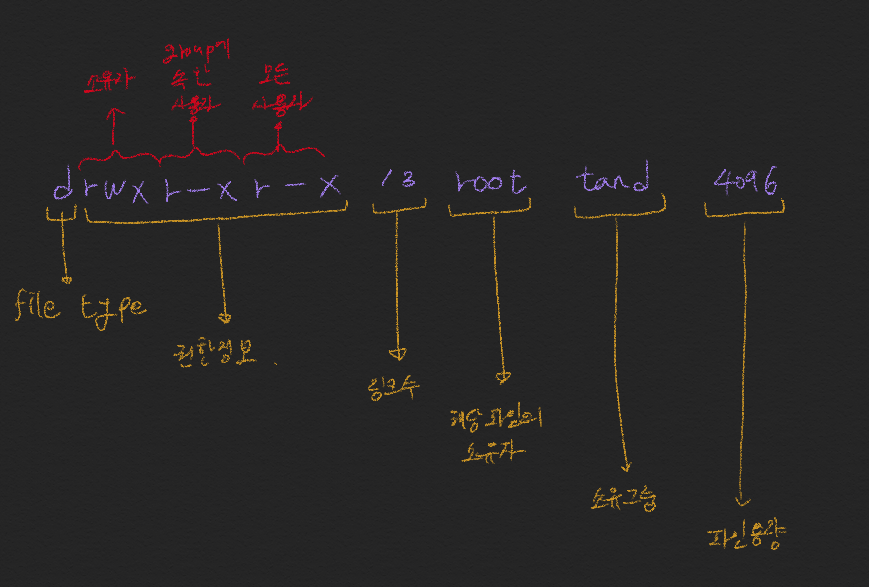 소유자
group에
속한
사용자
모든
사용자
drwxr-xr-x 13 root tand 4096
file type
권한정보.
링크수
해당파일의
소유자
소유그룹
파일용량